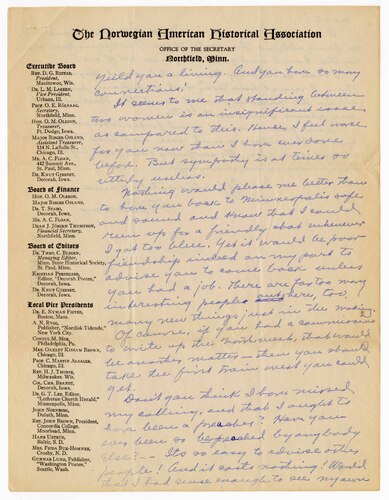 The Norwegian American Historical Association
OFFICE OF THE SECRETARY
Northfield, Minn.
Executive Board
REV. D. G. RISTAD,
President,
Manitowoc, Wis.
DR. L. M. LARSEN,
Vice President,
Urbana, Ill.
PROF. O. E. RÖLVAAG,
Secretary,
Northfield, Minn.
HON. O. M. OLESON,
Treasurer,
Ft. Dodge, Iowa.
MAJOR BIRGER OSLAND,
Assistant Treasurer,
134 N. LaSalle St.,
Chicago, Ill.
MR. A. C. FLOAN,
St. Paul, Minn.
DR. KNUT GJERSET,
Decorah, Iowa.
Board of Finance
HON. O. M. OLESON,
MAJOR BIRGER OSLAND,
DR. T. STABO,
Decorah, Iowa.
MR. A. C. FLOAN,
DEAN J. JÖRGEN THOMPSON,
Financial Secretary,
Northfield, Minn.
Board of Editors
DR. THEO. C. BLEGEN,
Managing Editor,
Minn. State Historical Society,
St. Paul, Minn.
KRISTIAN PRESTGARD,
Editor, "Decorah Posten,"
Decorah, Iowa.
DR. KNUT GJERSET,
Decorah, Iowa.
Local Vice Presidents
Canton, Mass.
A. N. RYGG,
Publisher, "Nordisk Tidende,"
New York City.
Philadelphia, Pa.
MRS. OAKLEY KISSAM BROWN,
Chicago, Ill.
PROF. C. MARTIN ALSAGER,
Chicago, Ill.
Milwaukee, Wis.
COL. CHR. BRANDT,
Decorah, Iowa.
DR. G. T. LEE, Editor,
"Lutheran Herald,"
Minneapolis, Minn.
Duluth, Minn.
President,
Concordia College,
Moorhead, Minn.
HANS USTRUD,
Baltic, S. D.
Crosby, N. D.
GUNNAR LUND, Publisher,
"Washington Posten,"
Seattle, Wash.
yield you a living. And you have so many
connections!
It seems to me that standing between
two women is an insignificant issue
as compared to this. Hence, I feel worse
for you now than I have ever done
before. But sympathy is at times so
utterly useless.
Nothing would please me better than
to have you back to Minneapolis safe
and sound and know that I could
run up for a friendly chat whenever
I got too blue. Yet it would be poor
friendship indeed on my part to
advise you to come back unless
you had a job. There are far too many
interesting people out here, too
many new things just in the making.
Of course, if you had a commission
to write up the Northwest, that would
be another matter — then you should
take the first train west you could
get.
Don't you think I have missed
my calling, and that I ought to
have been a preacher? Have you
ever been so bepreached by anybody
else? — Its so easy to advise other
people! And it costs nothing! Would
that I had sense enough to see my own